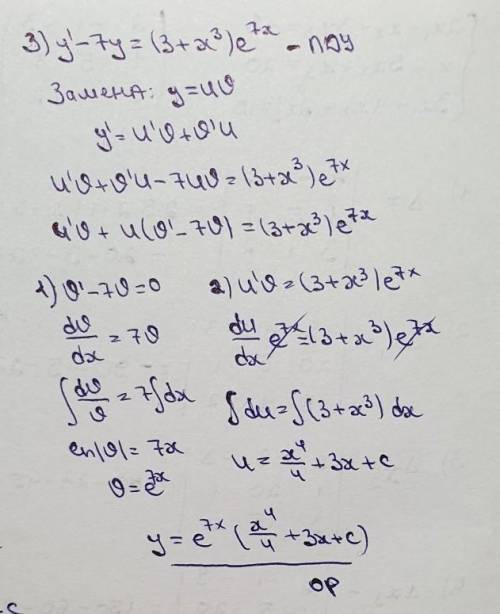 3) y' - 7y = (3 + x³)e^{7x} - ЛДУ
Замена: y = uϑ
y' = u'ϑ + ϑ'u
u'ϑ + ϑ'u - 7uϑ = (3 + x³)e^{7x}
u'ϑ + u(ϑ' - 7ϑ) = (3 + x³)e^{7x}
1) ϑ' - 7ϑ = 0
dϑ/dx = 7ϑ
∫ dϑ/ϑ = 7∫dx
ln|ϑ| = 7x
ϑ = e^{7x}
2) u'ϑ = (3 + x³)e^{7x}
du/dx e^{7x} = (3 + x³)e^{7x}
∫du = ∫(3 + x³)dx
u = x⁴/4 + 3x + c
y = e^{7x}(x⁴/4 + 3x + c)
ОР